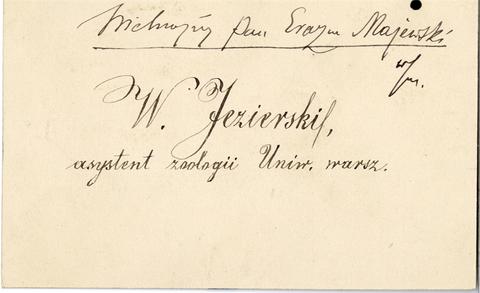 Wielmożny Pan Erazm Majewski
w/m.
W. Jezierski,
asystent zoologii Uniw. warsz.